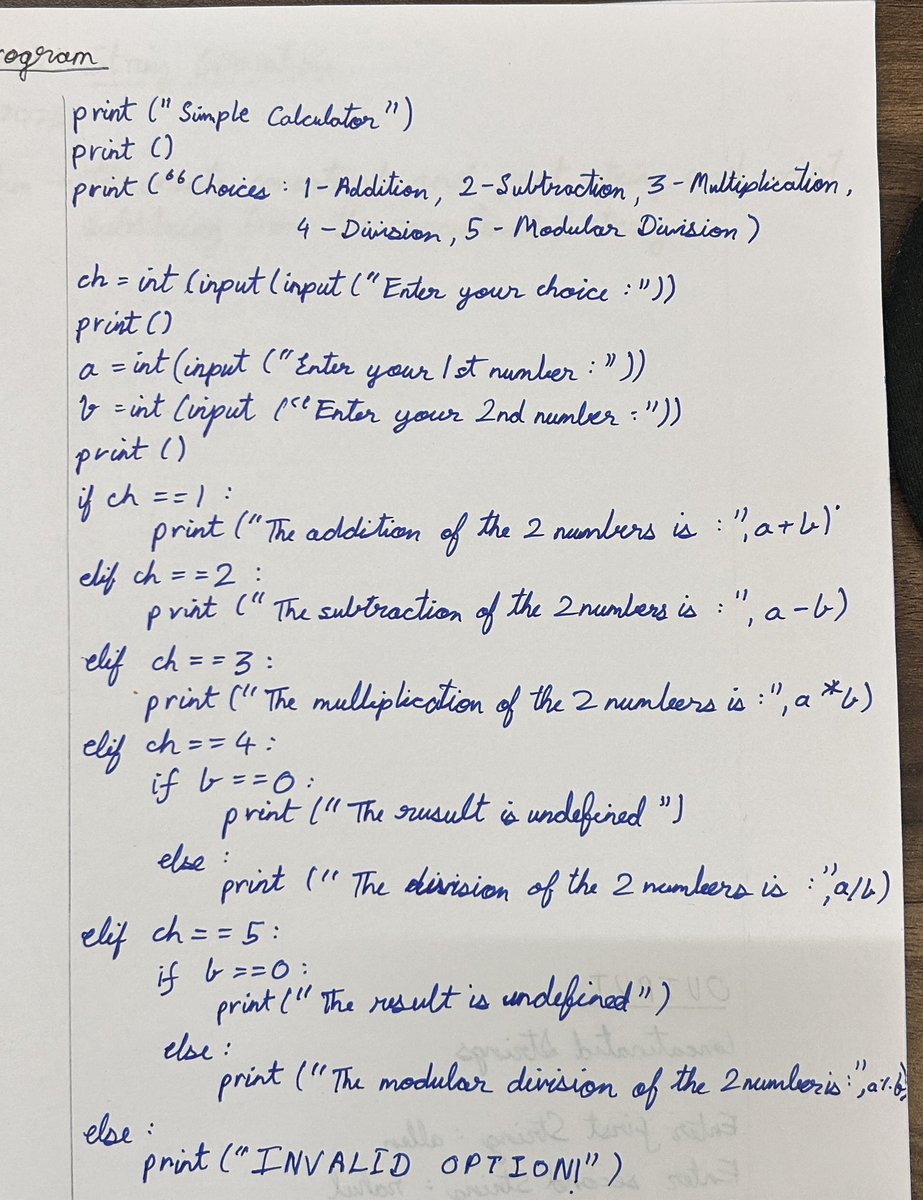 rogram
print ("Simple Calculator")
print ()
print ("Choices : 1-Addition, 2-Subtraction, 3-Multiplication,
4-Division, 5-Modular Division)
ch = int (input (input ("Enter your choice :"))
print ()
a = int (input ("Enter your 1st number : "))
b = int (input ("Enter your 2nd number :"))
print ()
if ch == 1 :
print ("The addition of the 2 numbers is :", a+b)
elif ch == 2 :
print (" The subtraction of the 2 numbers is :", a-b)
elif ch == 3 :
print ("The multiplication of the 2 numbers is :", a*b)
elif ch == 4 :
if b == 0 :
print ("The rusult is undefined ")
else :
print (" The division of the 2 numbers is :", a/b)
elif ch == 5 :
if b == 0 :
print (" The result is undefined")
else :
print ("The modular division of the 2 number is :", a%b)
else :
print ("INVALID OPTION!")